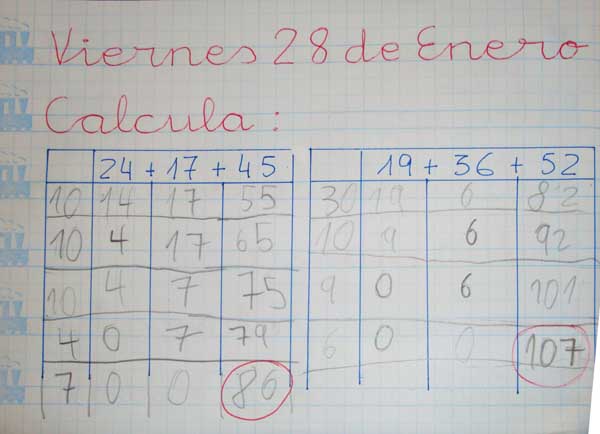 Viernes 28 de Enero
Calcula:
24 + 17 + 45 19 + 36 + 52
10 14 17 55 30 19 6 82
10 4 17 65 10 9 6 92
10 4 7 75 9 0 6 101
4 0 7 79 6 0 0 107
7 0 0 86